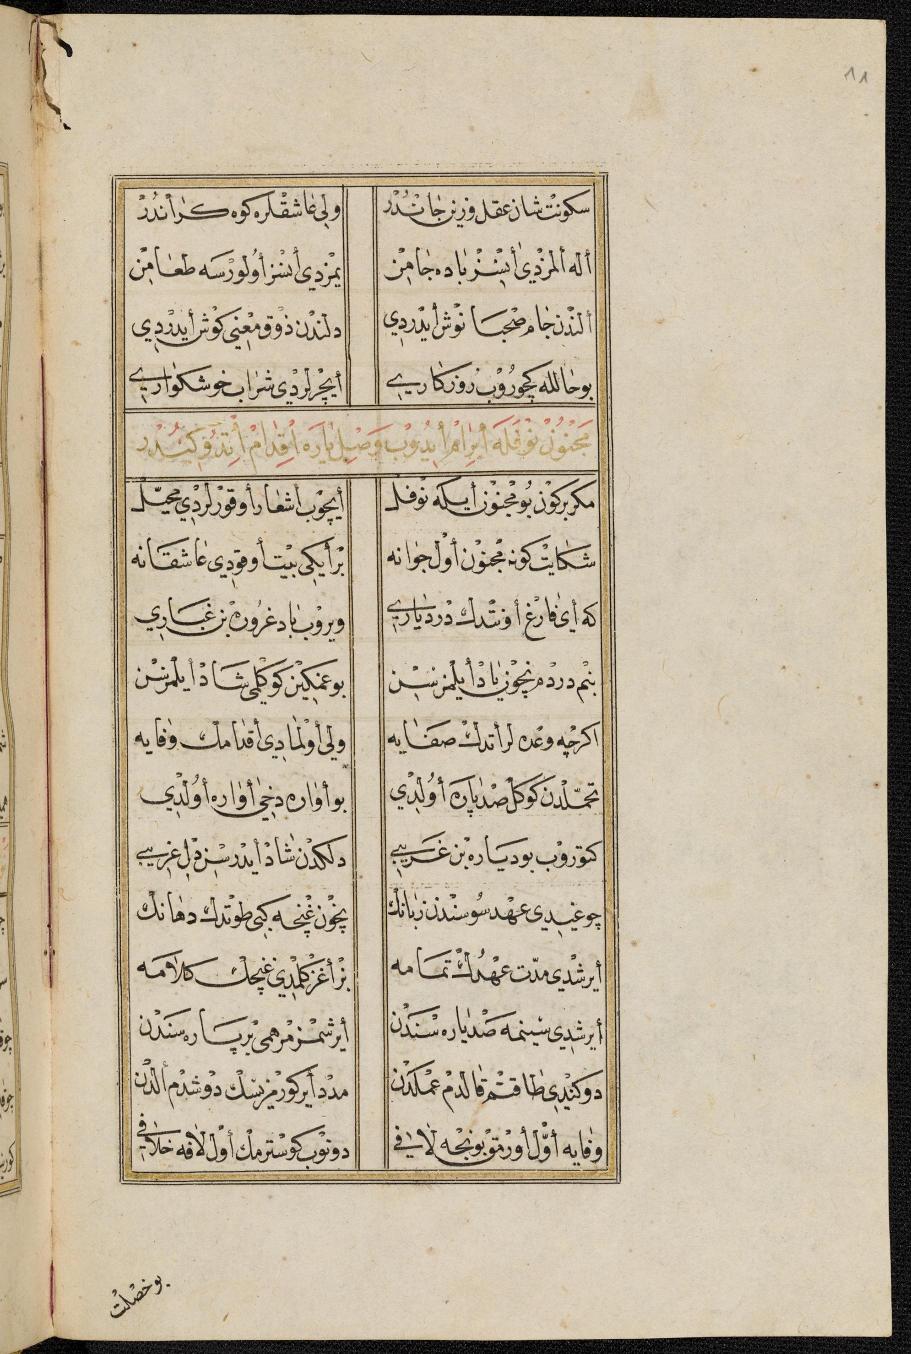 ٨١
سكونت شان عقل ورين جاندر ولي عاشقلره كوه كراندر
أله ألمزدي أنسز باده جامن يمزدي أنسز أولورسه طعامن
ألندن جام صحبا نوش أيدردي دلندن ذوق معني كوش أيدردي
بو حالله كچوروب روزكاري أيچرلردي شراب خوشكواري
مجنون نوفله أبرام أيدوب وصل ياره أقدام أتدوكيدر
مكر بر كون بو مجنون أيله نوفل أيچوب أشعار أوقورلردي محيل
شكايت كونه مجنون أول جوانه بر أيكي بيت أوقودي عاشقانه
كه أي فارغ أونتدك درد ياري ويروب باد غروره بن غباري
بنم دردم نچون ياد أيلمزسن بو غمكين كوكلمي شاد أيلمزسن
اكرچه وعده لر أتدك صفايه ولي أولمادي أقدامك وفايه
تحمّلدن كوكل صد پاره أولدي بو أواره دخي أواره أولدي
كتوروب بو دياره بن غريبي دلكدن شاد أيدرسن دل غريبي
چو غنچه كبي طوتدك دهانك
أيرشدي مدّت عهدك تمامه بر أغز كلمدي غنچك كلامه
أيرشدي سينمه صد ياره سندن أيرشمز مرهمي بر پاره سندن
دوكندي طاقتم قالدم عملدن مدد أيركورمزسك دوشدم ألدن
وفايه أوّل أورمق بونجه لافي دونوب كوسترمك أول لافه خلافي
بو خصلت